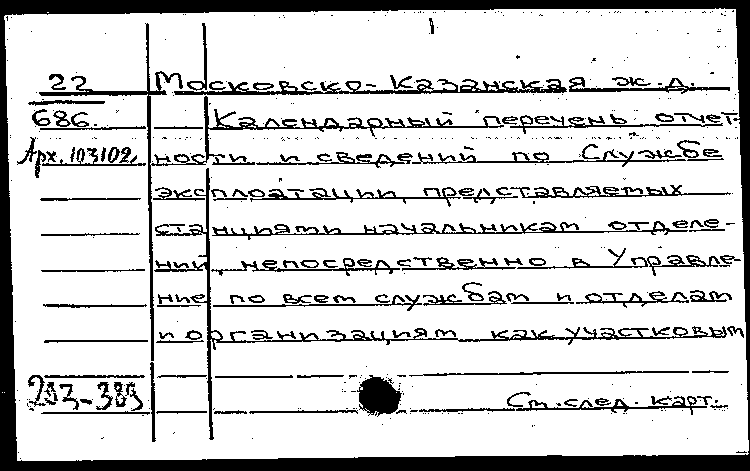 22 Московско-Казанская ж.д.
686. Календарный перечень отчет-
Арх. 103102. ности и сведений по Службе
эксплоатации, представляемых
станциями начальникам отделе-
ний, непосредственно в Управле-
ние по всем службам и отделам
и организациям как участковым
293-389
См. след. карт.